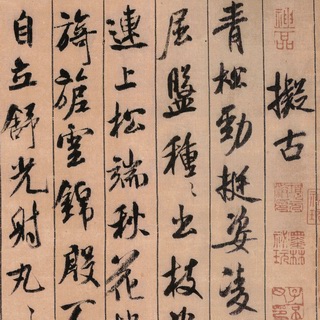 神品
擬古
青松勁挺姿凌
屈盤種〻出枝
連上松端秋花
旖旎雲錦殷不
自立舒光射丸〻